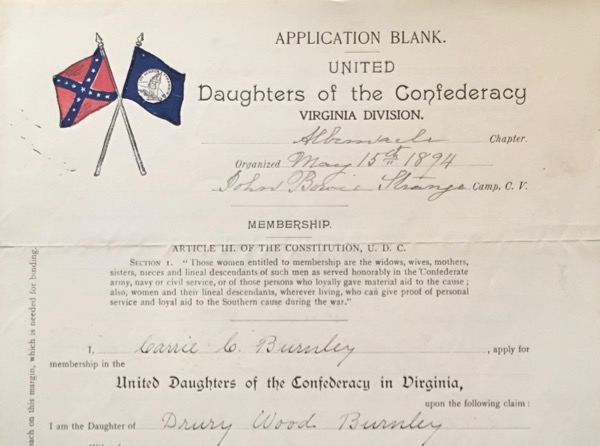 APPLICATION BLANK.
UNITED
Daughters of the Confederacy
VIRGINIA DIVISION.
Albemarle Chapter.
Organized May 15th 1894
John Bowie Strange Camp, C. V.
MEMBERSHIP.
ARTICLE III. OF THE CONSTITUTION, U. D. C.
SECTION 1. "Those women entitled to membership are the widows, wives, mothers,
sisters, nieces and lineal descendants of such men as served honorably in the Confederate
army, navy or civil service, or of those persons who loyally gave material aid to the cause;
also, women and their lineal descendants, wherever living, who can give proof of personal
service and loyal aid to the Southern cause during the war."
I, Carrie C. Burnley, apply for
membership in the
United Daughters of the Confederacy in Virginia,
upon the following claim:
I am the Daughter of Drury Wood Burnley
on this margin, which is needed for binding.